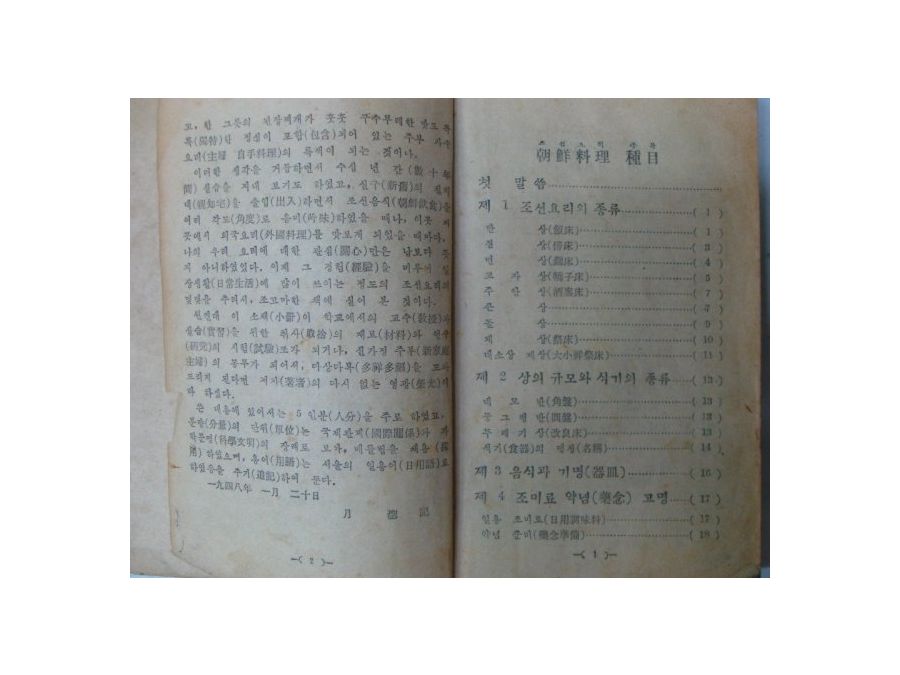 고, 한 그릇의 된장찌개가
(獨特)한 정성이 포함(包含)되어 있는 주부
요리(主婦 自手料理)의 특색이 되는 것이다.
이러한 생각을 거듭하면서 수십 년 간(數十年
間) 실습을 지내 보기도 하였고, 신구(新舊)의 친지
댁(親知宅)을 출입(出入)하면서 조선음식(朝鮮飮食)을
여러 각도(角度)로 음미(吟味)하였을 때나, 이곳 저
곳에서 외국요리(外國料理)를 맛보게 되었을 때마다,
나의 우리 요리에 대한 관심(關心)만은 남보다 못
지 아니하였었다. 이제 그 경험(經驗)을 미루어 일
상생활(日常生活)에 많이 쓰이는 정도의 조선요리의
몇몇을 추려서, 조고마한 책에 실어 본 것이다.
원컨대 이 소책(小冊)이 학교에서의 교수(敎授)와
실습(實習)을 위한 취사(取捨)의 재료(材料)와 연구
(硏究)의 시험(試驗)조가 되거나, 신가정 주부(新家庭
主婦)의 동무가 되어서, 다상다복(多祥多福)을 도와
드리게 된다면 저자(著者)의 다시 없는 영광(榮光)이
라 하겠다.
쓴 내용에 있어서는 5 인분(人分)을 주로 하였고,
분량(分量)의 단위(單位)는 국제관계(國際關係)와 과
학문명(科學文明)의 장래로 보아, 메돌법을 채용(採
用)하였으며, 용어(用語)는 서울의 일용어(日用語)로
하였음을 추기(追記)하여 둔다.
一九四八年 一月 二十日
月 記
—( 2 )—
조선료리 종목
朝鮮料理 種目
첫 말씀
제 1 조선요리의 종류 ( 1 )
반 상(飯床) ( 1 )
겸 상(傔床) ( 3 )
면 상(麵床) ( 4 )
교자 상(轎子床) ( 5 )
주안 상(酒案床) ( 7 )
큰 상 ( 7 )
돌 상 ( 9 )
제 상(祭床) ( 10 )
대소상 제상(大小祥祭床) ( 11 )
제 2 상의 규모와 식기의 종류 ( 13 )
네모 반(角盤) ( 13 )
둥그령 반(圓盤) ( 13 )
두레기 상(改良床) ( 14 )
식기(食器)의 명칭(名稱) ( 14 )
제 3 음식과 기명(器皿) ( 16 )
제 4 조미료 약념(藥念) 고명 ( 17 )
일용 조미료(日用調味料) ( 17 )
약념 준비(藥念準備) ( 18 )
—( 1 )—